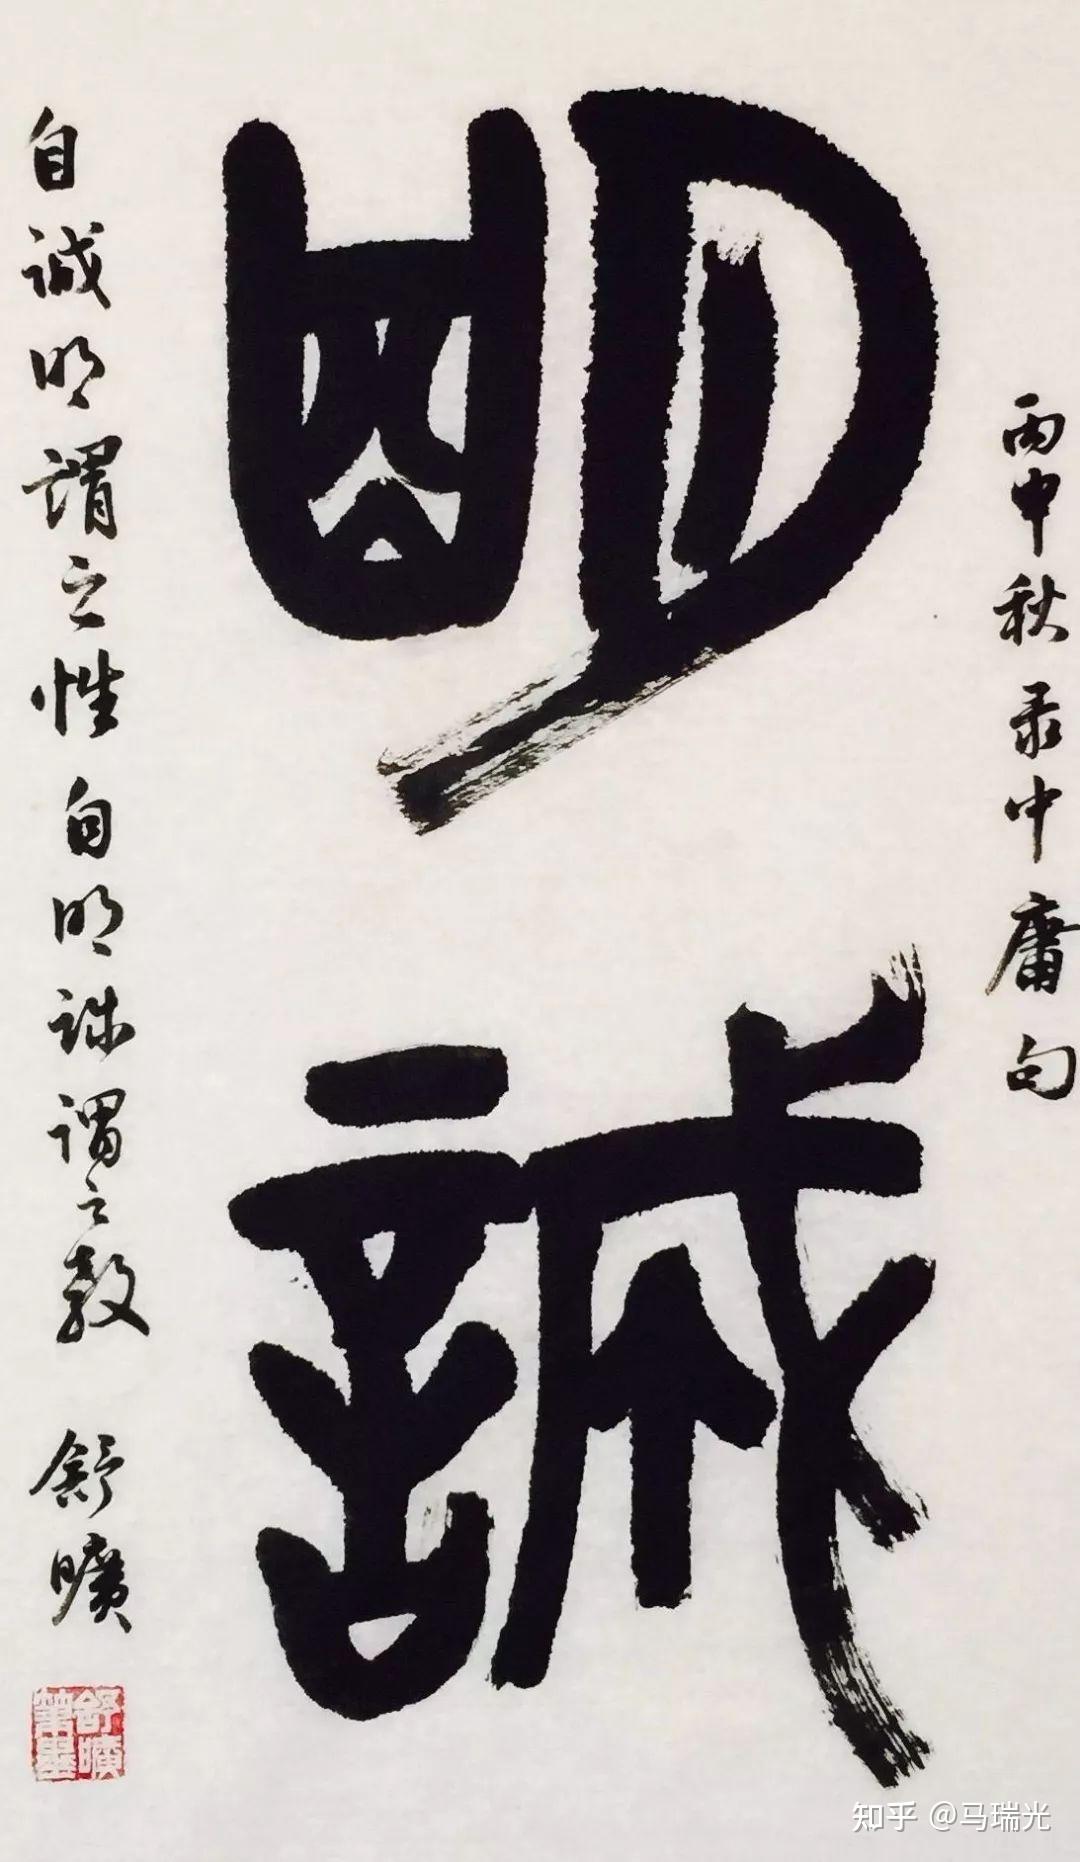 丙申秋录中庸句
明誠
自诚明谓之性自明诚谓之教
舒曠
舒曠筆墨
知乎 @马瑞光